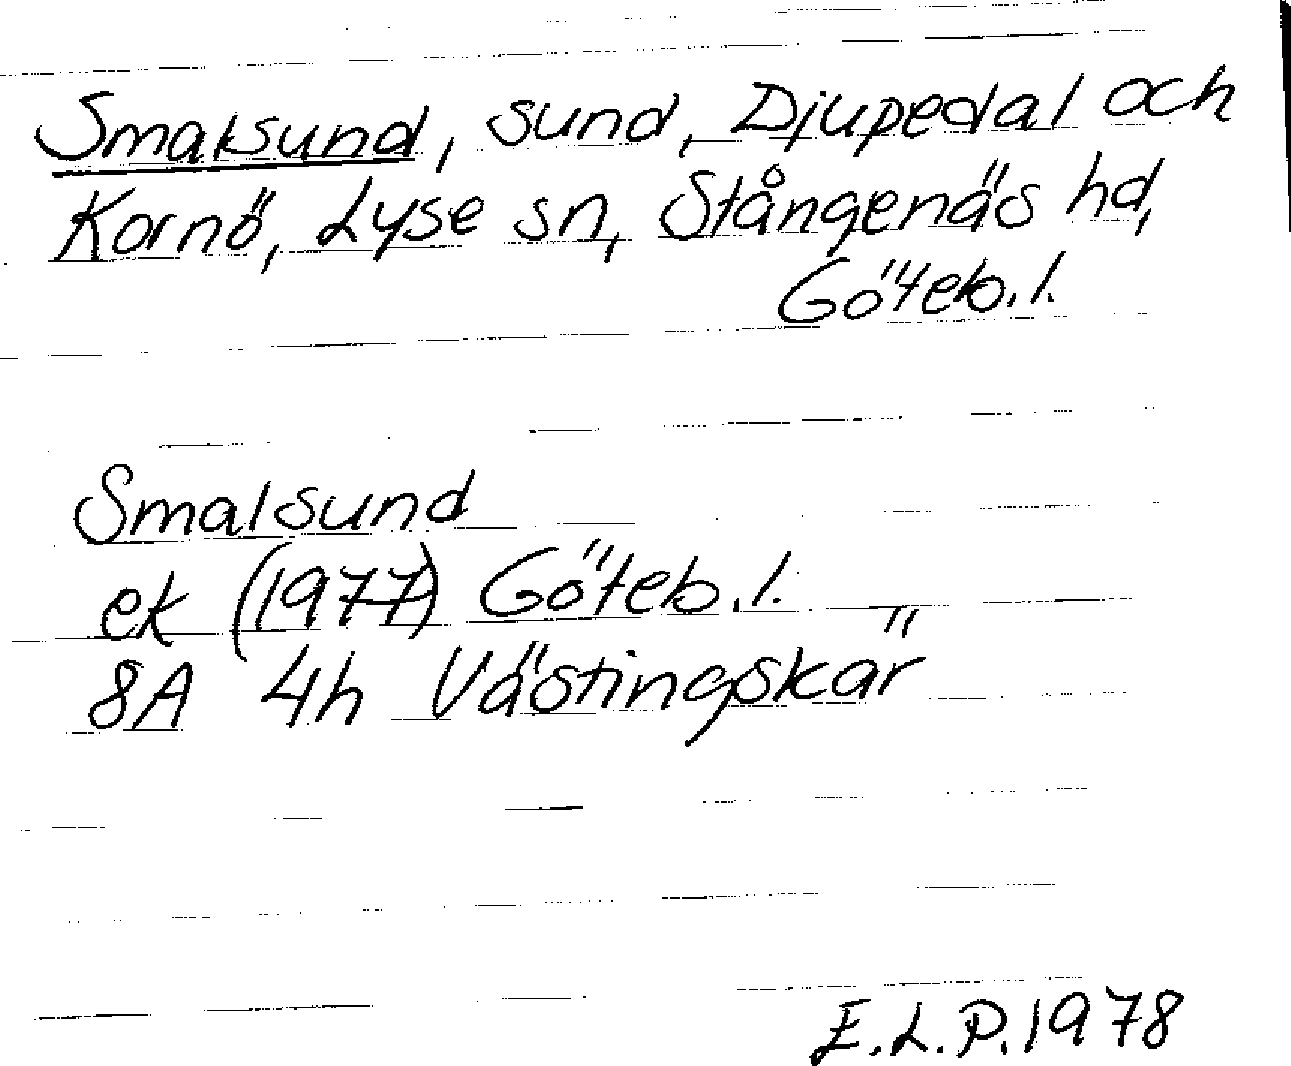 Smalsund, sund, Djupedal och
Kornö, Lyse sn, Stångenäs hd,
Göteb. l.
Smalsund
ek (1977) Göteb. l.
8A 4h Västingskär
E.L.P. 1978